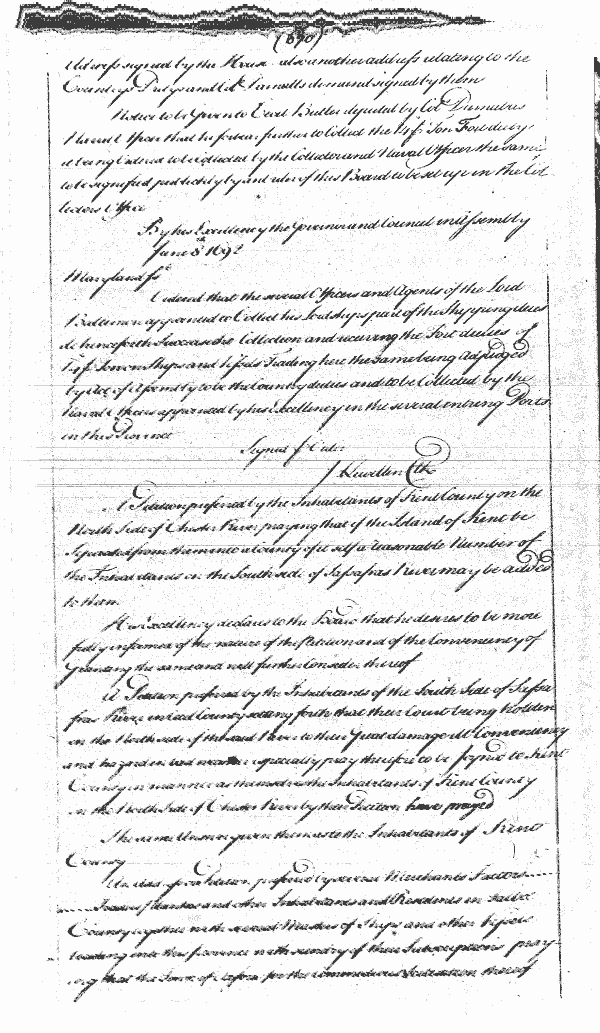 (690)
Address signed by the House. also another address relating to the
Countrys Dutys and Col Darnalls demand signed by them
Notice to be given to Cecil Butler deputed by Col Darnall
that he forbear further to Collect the Ton
it being Ordered to be Collected by the Collector and Naval Officer the same
to be signified publickly by and order of this Board to be set up in the Col
lectors Office
By his Excellency the Governor and Council in Assembly
June 8th 1692
Maryland ss
Ordered that the several Officers and Agents of the Lord
Baltemore appointed to Collect his Lordships part of the Shipping dues
do henceforth Surcease the Collection and receiving the Port duties of
Ton on Ships and Vessels Trading here the same being adjudged
by Act of Assembly to be the Country duties and to be Collected by the
Naval Officers appointed by his Excellency in the several entring Ports
in this Province
Signed p Order
J Llewellin Clk
A Petition preferred by the Inhabitants of Kent County on the
North Side of Chester River praying that if the Island of Kent be
Separated from them into a County of it self a reasonable Number of
the Inhabitants on the South side of Sassafras River may be added
to them.
His Excellency declares to the Board that he desires to be more
fully informed of the nature of the Petition and of the Conveniency of
Granting the same and will further Consider thereof
A Petition preferred by the Inhabitants of the South Side of Sassa
fras River in Cecil County setting forth that their Court being holden
on the North side of the said River to their Great damage ill Conveniency
and hazard in bad weather especially pray therefore to be joyned to Kent
County in manner as themselves the Inhabitants of Kent County
on the North Side of Chester River by their Petition have prayed
The same Answer given them as to the Inhabitants of Kent
County
Upon a Petition preferred by several Merchants Factors
Traders Planters and other Inhabitants and Residents in Talbot
County together with several Masters of Ships and other Vessels
trading into this province with sundry of their Subscriptions pray-
ing that the Town of Oxford for the Commodious Scituation thereof